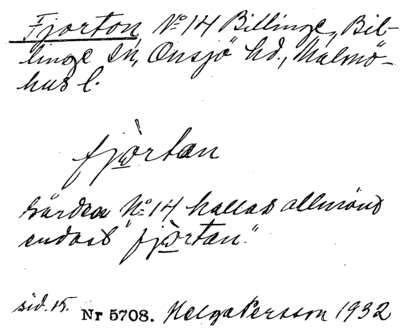 Fjorton, No 14 Billinge, Bil-
linge sn, Onsjö hd., Malmö-
hus l.
fjòrtan
Gården No 14 kallas allmänt
endast "fjòrtan".
sid. 15. Nr 5708. Helga Persson 1932